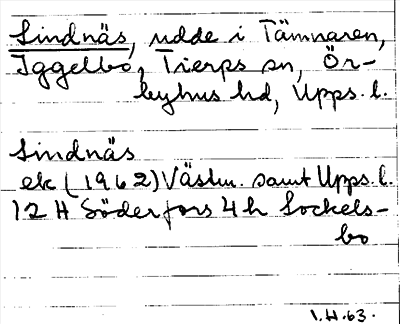 Lindnäs, udde i Tämnaren,
Iggelbo, Tierps sn, Ör-
byhus hd, Upps. l.
Lindnäs
ek (1962) Västm. samt Upps. l.
12 H Söderfors 4 h Sockels-
bo
I.H.63.